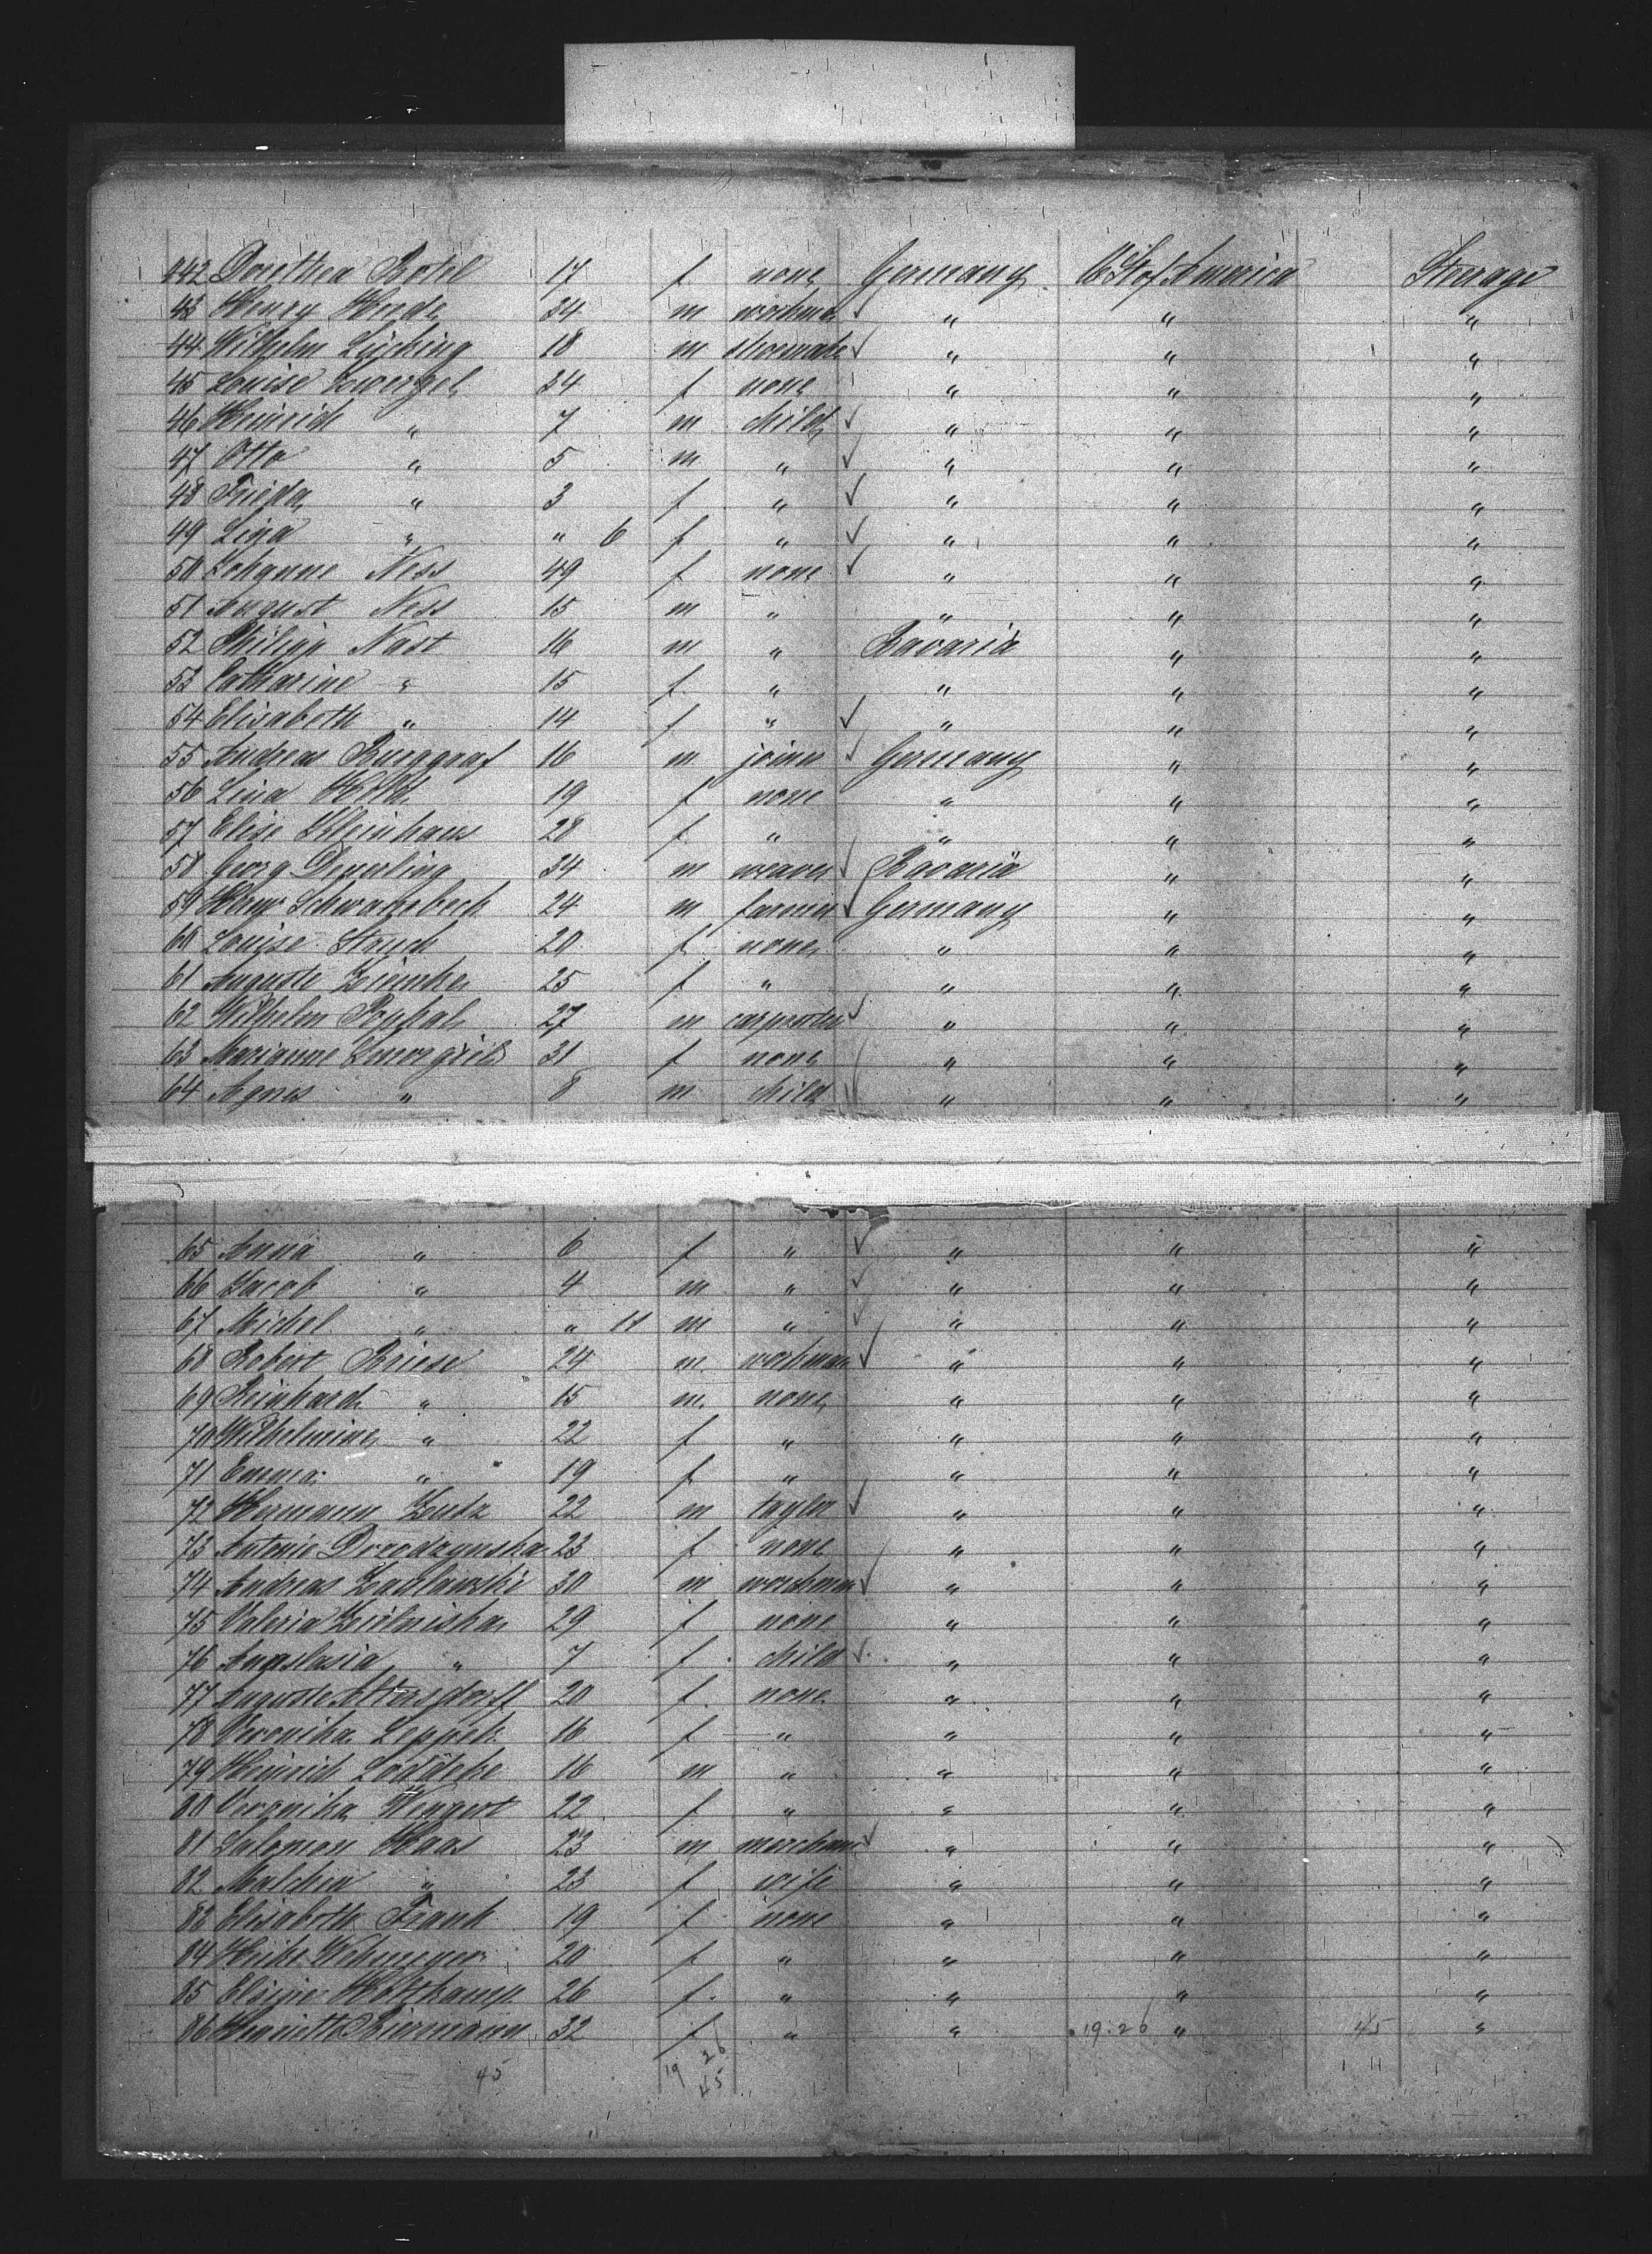 442 Dorothea Botel 17 f none Germany U St of America Steerage
43 Henry 34 m workman " " "
44 Wilhelm Lüching 18 m shoemak " " "
45 Louise Zwergel 34 f none " " "
46 Heinrich " 7 m child " " "
47 Otto " 5 m " " " "
48 Frieda " 3 f " " " "
49 Lina " " 6 f " " " "
50 Johanne Ness 49 f none " " "
51 August Ness 15 m " " " "
52 Philipp Nast 16 m " Bavaria " "
53 Catharine " 15 f " " " "
54 Elisabeth " 14 f " " " "
55 Andreas Burggraf 16 m joiner Germany " "
56 Lina 19 f none " " "
57 Elise Kleinhans 28 f " " " "
58 Georg Deuerling 34 m weaver Bavaria " "
59 Herm Schwanebeck 24 m farmer Germany " "
60 Louise Struck 20 f none " " "
61 Auguste Ziemke 25 f " " " "
62 Wilhelm Pophal 27 m carpenter " " "
63 Marianne 31 f none " " "
64 Agnes " 8 m child " " "
65 Anna " 6 f " " " "
66 Jacob " 4 m " " " "
67 Michel " " 11 m " " " "
68 Robert Briese 24 m workman " " "
69 Reinhard " 15 m none " " "
70 Wilhelmine " 22 f " " " "
71 Emma " 19 f " " " "
72 Hermann Zutz 22 m taylor " " "
73 Antonie Drzodzynska 23 f none " " "
74 Andreas Zaclawski 30 m workman " " "
75 Valeria Zielniska 29 f none " " "
76 Anastasia " 7 f child " " "
77 Auguste Altersdorff 20 f none " " "
78 Veronika Leppek 16 f " " " "
79 Heinrich Lödteke 16 m " " " "
80 Veronika Wengert 22 f " " " "
81 Salomon Haas 23 m merchant " " "
82 Malchen " 23 f wife " " "
83 Elisabeth Frank 19 f none " " "
84 Wehmeyer 20 f " " " "
85 Holtkamp 26 f " " " "
86 Henriette Biermann 32 f " " 19.26 " 45 "
45 19 26
45